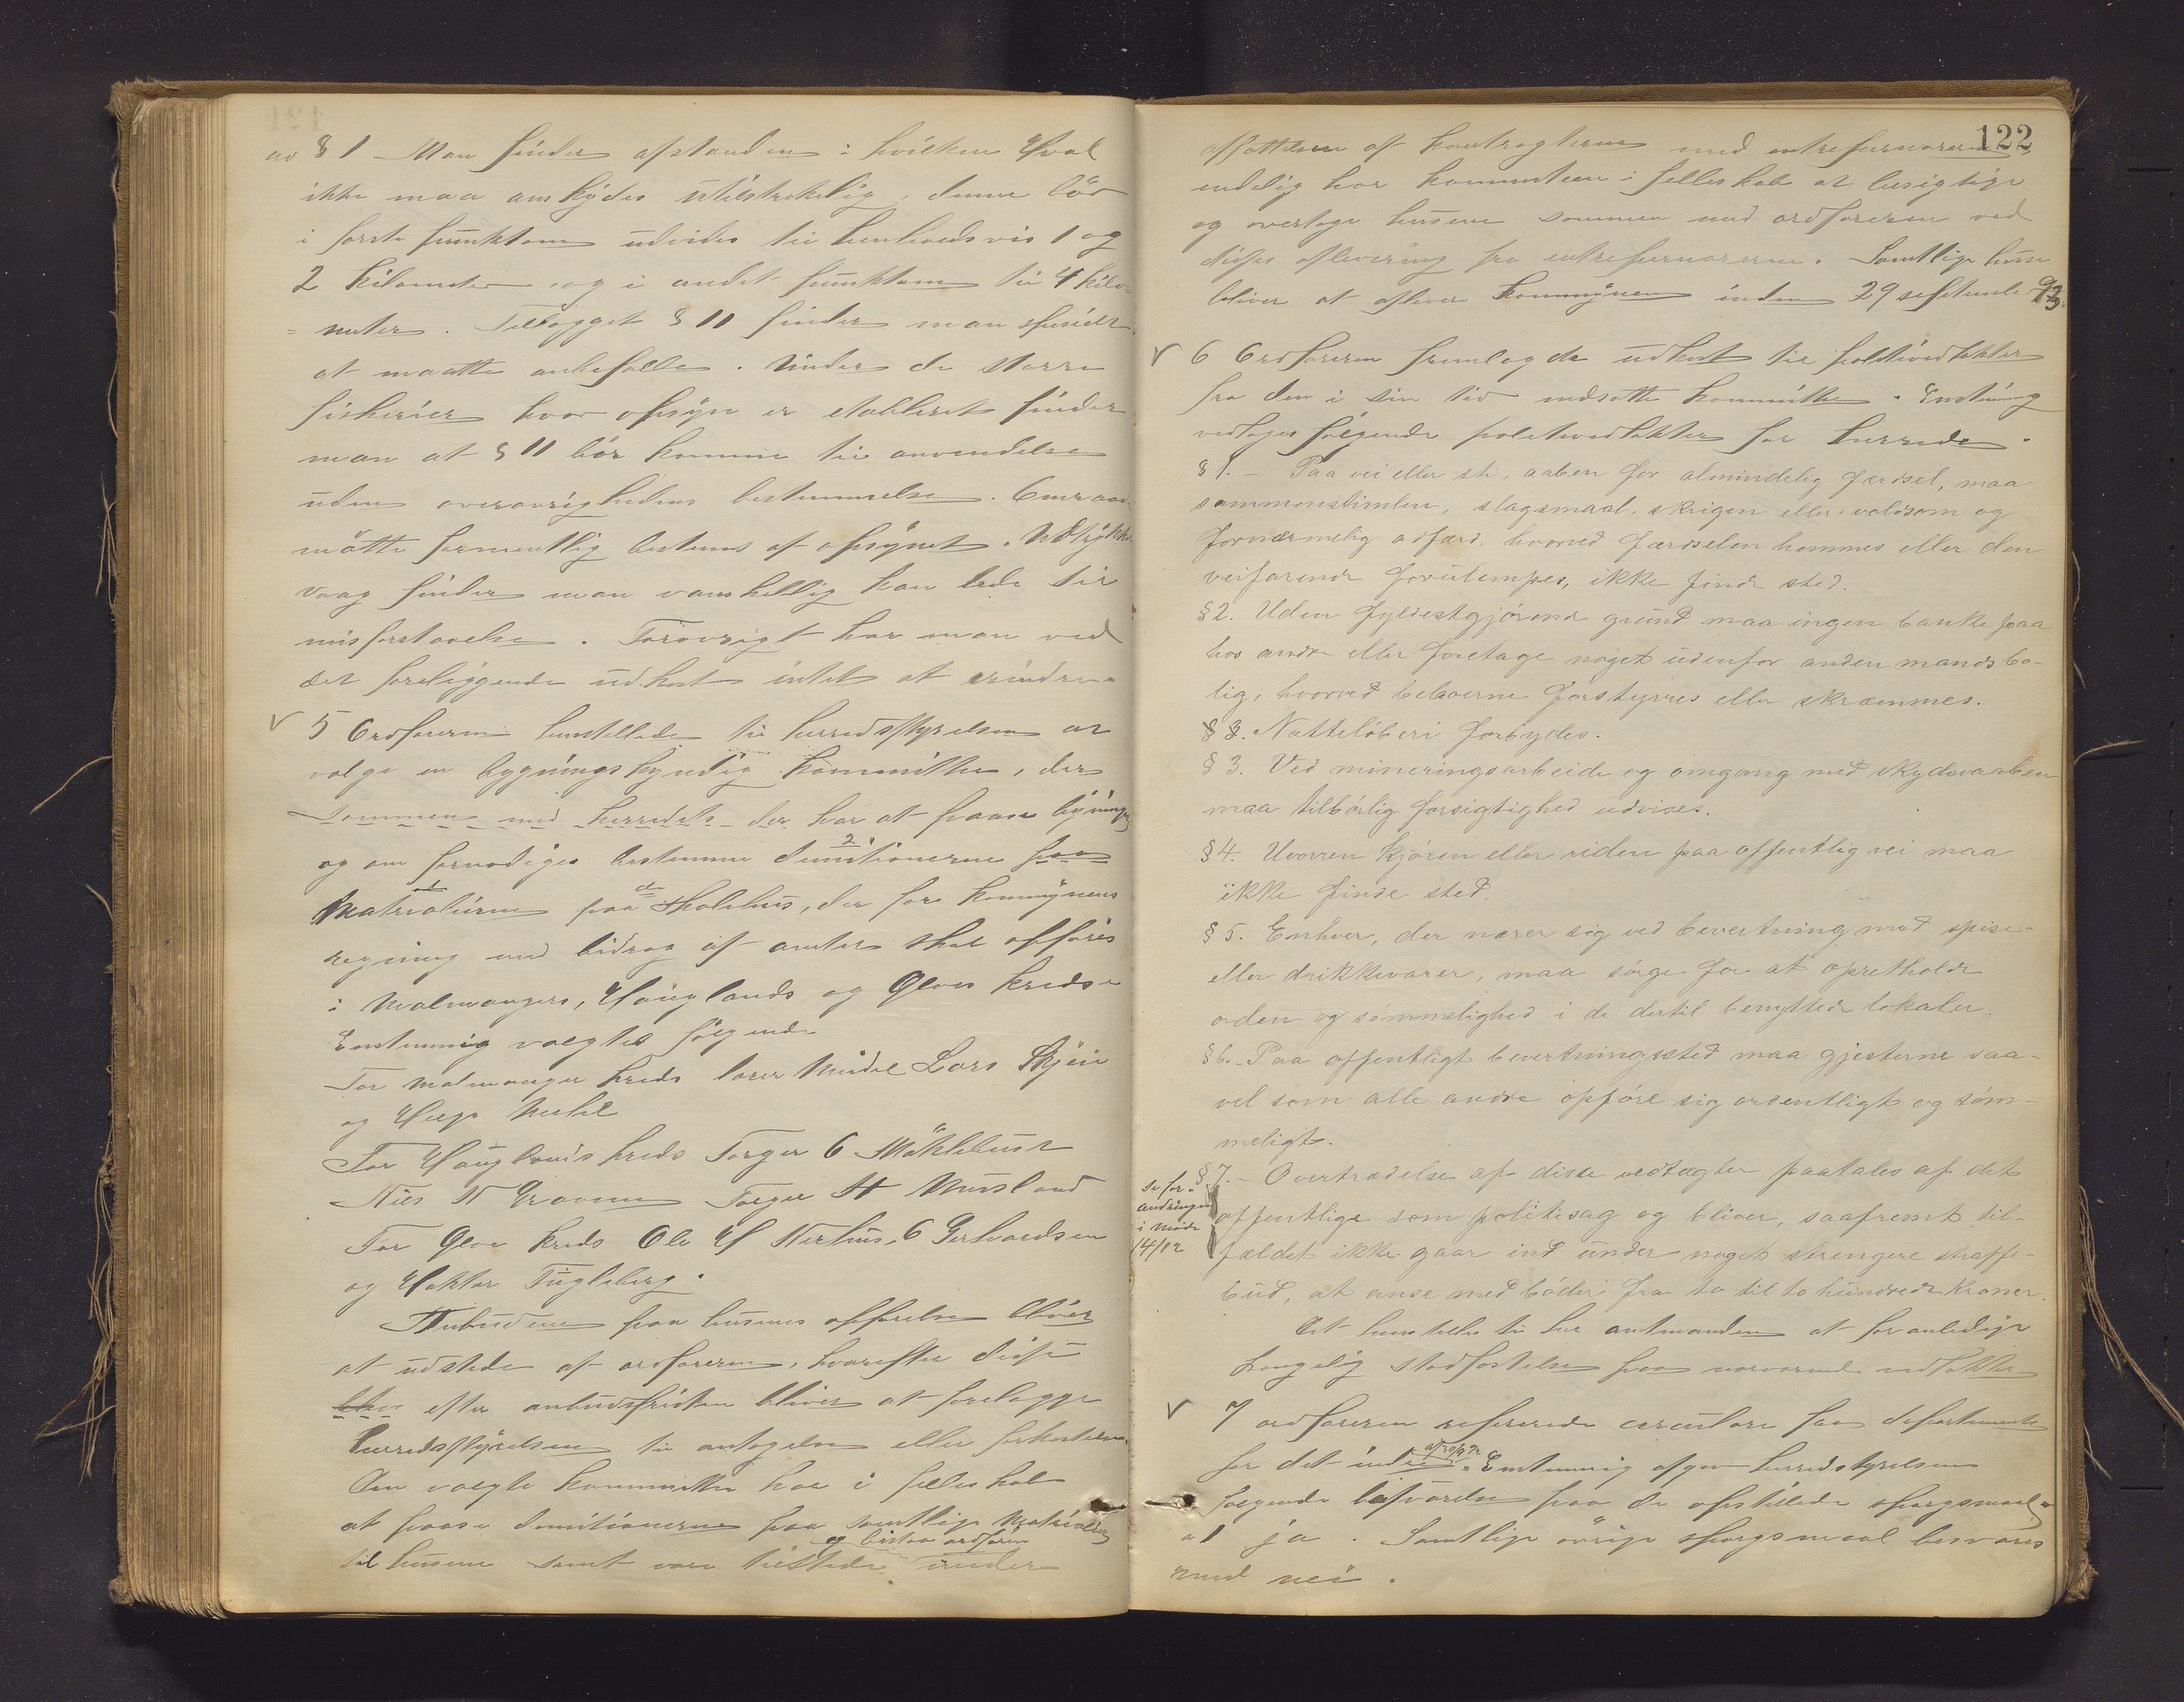 ad § 1 Man finder afstanden i hvilken Hval
ikke maa anskydes utilstrekkelig, denne bör
i første punktum udvides til henholdsvis 1 og
2 kilometer og i andet punktum til 4 kilo-
meter. Tillægget § 11 finder man specielt
at maatte anbefalle. Under de større
fiskerier hvor opsyn er etableret finder
man at § 11 bör komme til anvendelse
uden overøvrighedens bestemmelse. Omraadet
måtte formentlig bestemes af opsynet. Udtrykket
vaag finder man vanskellig kan lede til
misforstaaelse. Forövrigt har man ved
det foreliggende udkast intet at erindre.
5 Ordføreren henstillede til herredsstyrelsen at
vælge en bygningskyndig kommitte, der
sammen med herredets der har at paase bygninger
og om fornødiges bestemme dimitionerne paa
Matrialierne paa de 2 Skolehus, der for kommunens
regning med bidrag af amtet skal opføres
i Malmangers, Hauglands og Ølves kredse
Enstemmig valgtes følgende
For Malmanger kreds lærer Lars Skjeie
og Helge
For Hauglands kreds Torger O Möklebust
Nils N Gravem Torger St Musland
For Ølve kreds Ole H Nerhus, O Gerhardsen
og Haktor Fugleberg.
Anbudene paa husenes opførelse bliver
at udstede af ordføreren, hvorefter disse
efter anbudsfristen bliver at forelægge
herredsstyrelsen til antagelse eller forkastelse.
Den valgte kommitte har i felleskab
at paase dimitionerne paa samtlige Matrialier
og bistaa ordføren
til husene samt være tilstede under
122
affattelsen af kontragterne med entreprenørerne,
endelig har kommiteen i felleskab at besigtige
og overtage husene sammen med ordføreren ved
disses aflevering fra entreprenørerne. Samtlige huse
bliver at aflevere kommunen inden 29 september 93.
6 Ordføreren fremlagde udkast til politivedtekter
fra den i sin tid nedsatte kommitte. Enstemmig
vedtoges følgende politivedtekter for herredet.
§ 1. - Paa vei eller sti, aaben for almindelig færdsel, maa
sammenstimlen, slagsmaal, skrigen eller voldsom og
fornærmelig adfærd, hvorved færdselen hemmes eller den
veifarende forulempes, ikke finde sted.
§ 2. Uden fyldestgjörende grund maa ingen banke paa
hos andre eller foretage noget udenfor anden mands bo-
lig, hvorved beboerne forstyrres eller skræmmes.
§ 3. Natteløberi forbydes.
§ 3. Ved mineringsarbeide og omgang med skydevaaben
maa tilbørlig forsigtighed udvises.
§ 4. Uvorren kjören eller riden paa offentlig vei maa
ikke finde sted.
§ 5. Enhver, der nærer sig ved bevertning med spise-
eller drikkevarer, maa sörge for at opretholde
orden og sømmelighed i de dertil benyttede lokaler.
§ 6. - Paa offentligt bevertningssted maa gjesterne saa-
vel som alle andre opføre sig ordentligt og søm-
meligt.
§ 7. - Overtrædelse af disse vedtægter paatales af det
offentlige som politisag og bliver, saafremt til-
fældet ikke gaar ind under noget strengere straffe-
bud, at anse med bøder fra to til to hundrede kroner.
Se for-
andringen
i møde
14/12
Det henstilles til hr amtmanden at foranledige
kongelig stadfæstelse paa nærværende vedtekter
7 ordføreren refererede circulære fra departementet
for det indre af 30/9 92. Enstemmig afgav herredstyrelsen
følgende besvarelse paa de opstillede spørgsmaal
a 1 ja. Samtlige övrige spørgsmaal besvares
med nei.